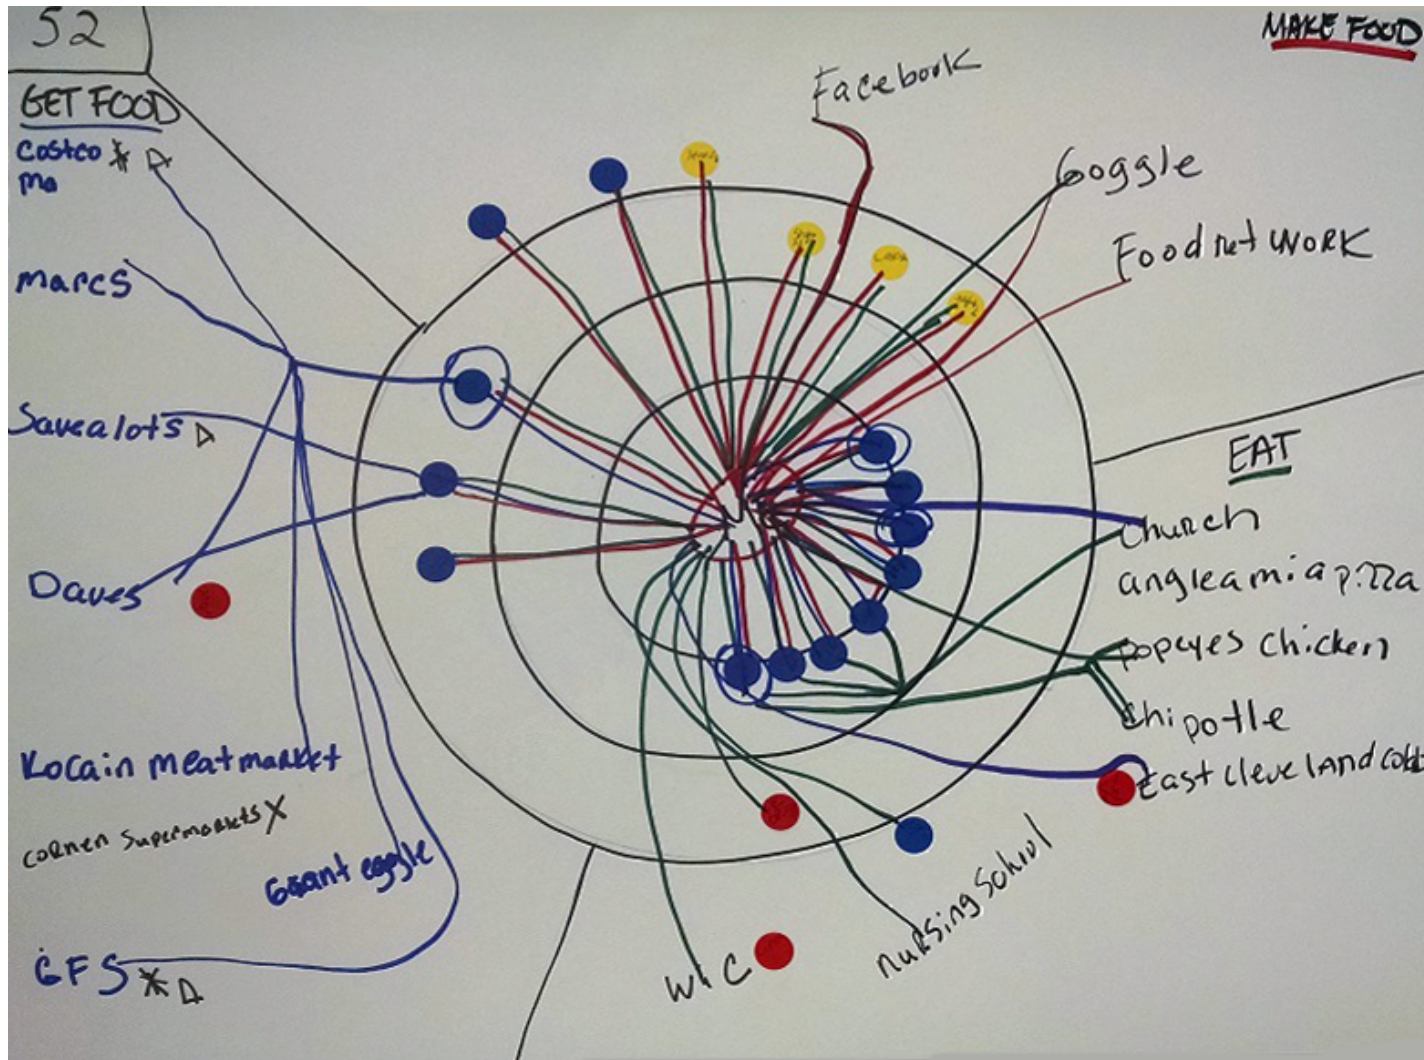 52
MAKE FOOD
GET FOOD
Costco
Ma
marcs
Savealots
Daves
Kocain meatmarket
CORNER SupermaRkets X
Giant eagle
GFS
Facebook
Goggle
Food net WORK
EAT
Church
angleamia pizza
popeyes chicken
Chipotle
East cleveland
nuRsing School
WiC